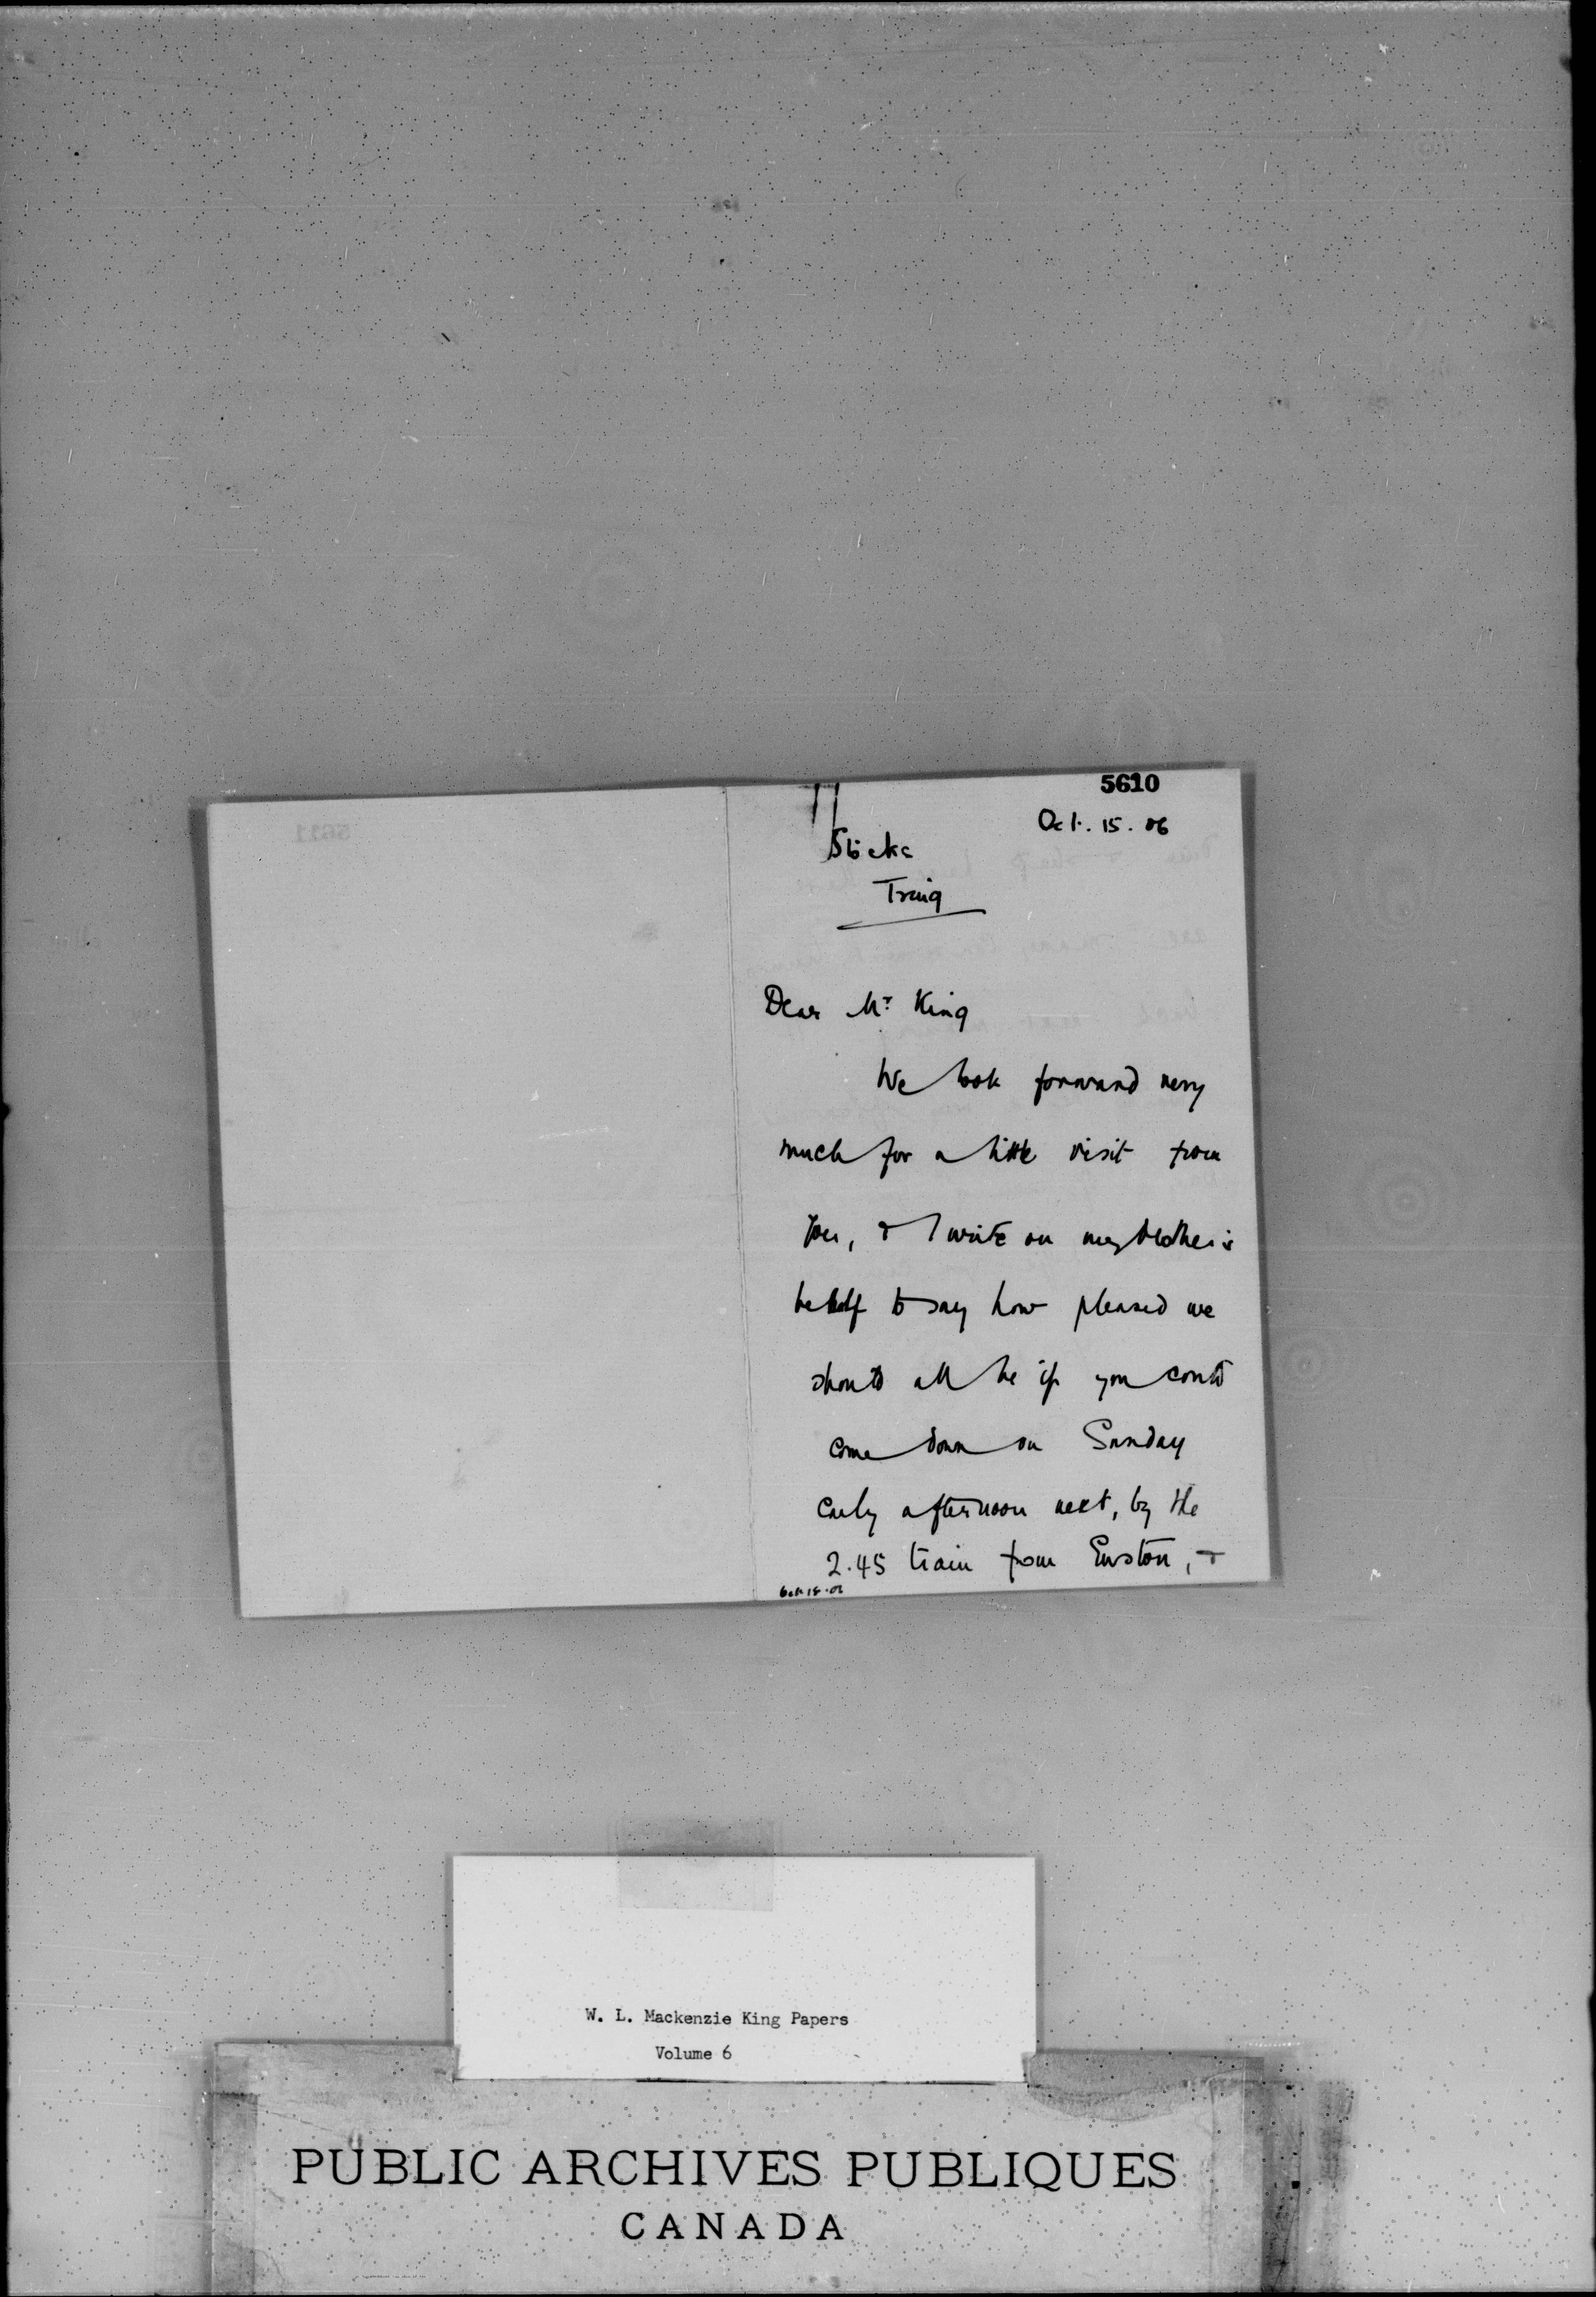 5610
Oct. 15. 06
Stocks
Tring
Dear Mr King
We look forward very
much for a little visit from
you, & I write on my Mother's
behalf to say how pleased we
should all be if you could
come down on Sunday
early afternoon next, by the
2.45 train from Euston, &
Oct. 15. 06
W. L. Mackenzie King Papers
Volume 6
PUBLIC ARCHIVES PUBLIQUES
CANADA